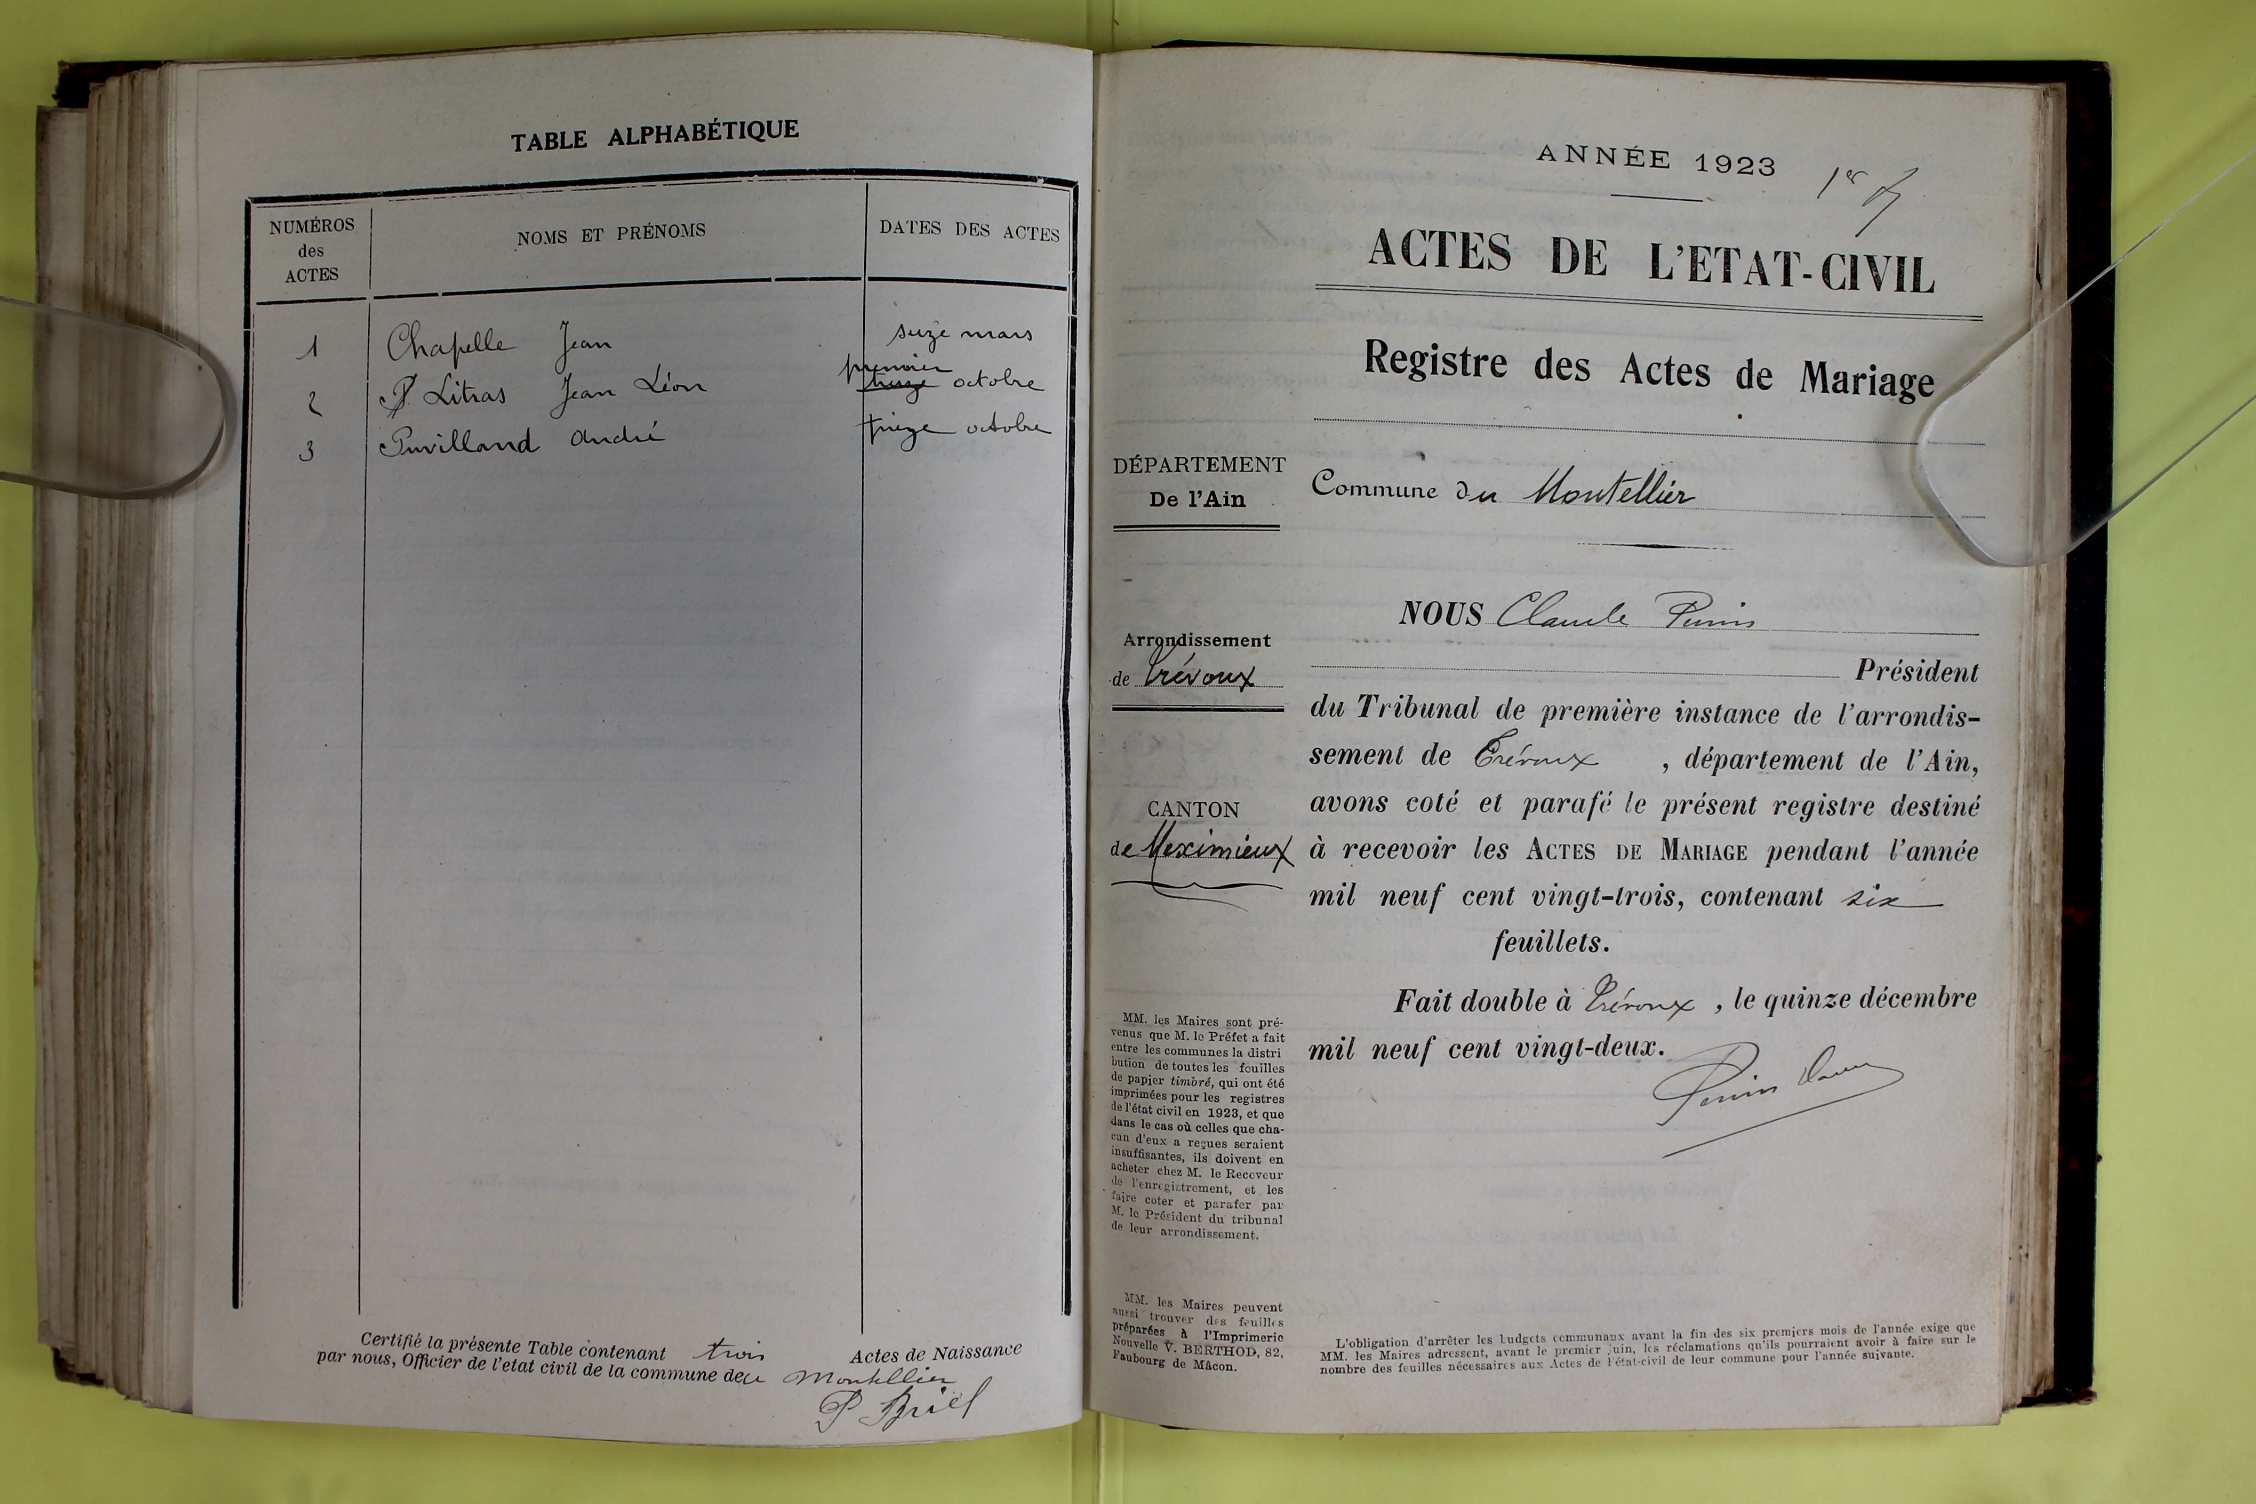 TABLE ALPHABÉTIQUE
NUMÉROS
des
ACTES
NOMS ET PRÉNOMS
DATES DES ACTES
1 Chapelle Jean seize mars
premier
2 Litras Jean Léon treize octobre
3 Puvilland André treize octobre
Certifié la présente Table contenant trois Actes de Naissance
par nous, Officier de l'etat civil de la commune de du Montellier
P Briel
ANNÉE 1923
1er
ACTES DE L'ETAT-CIVIL
Registre des Actes de Mariage
DÉPARTEMENT
De l'Ain
Commune du Montellier
Arrondissement
de Trévoux
CANTON
de Meximieux
NOUS Claude Perrin
Président
du Tribunal de première instance de l'arrondis-
sement de Trévoux , département de l'Ain,
avons coté et parafé le présent registre destiné
à recevoir les ACTES DE MARIAGE pendant l'année
mil neuf cent vingt-trois, contenant six
feuillets.
Fait double à Trévoux , le quinze décembre
mil neuf cent vingt-deux.
Perrin
MM. les Maires sont pré-
venus que M. le Préfet a fait
entre les communes la distri
bution de toutes les feuilles
de papier timbré, qui ont été
imprimées pour les registres
de l'état civil en 1923, et que
dans le cas où celles que cha-
cun d'eux a reçues seraient
insuffisantes, ils doivent en
acheter chez M. le Receveur
de l'enregistrement, et les
faire coter et parafer par
M. le Président du tribunal
de leur arrondissement.
MM. les Maires peuvent
aussi trouver des feuilles
préparées à l'Imprimerie
Nouvelle V. BERTHOD, 82,
Faubourg de Mâcon.
L'obligation d'arrêter les budgets communaux avant la fin des six premiers mois de l'année exige que
MM. les Maires adressent, avant le premier juin, les réclamations qu'ils pourraient avoir à faire sur le
nombre des feuilles nécessaires aux Actes de l'état-civil de leur commune pour l'année suivante.